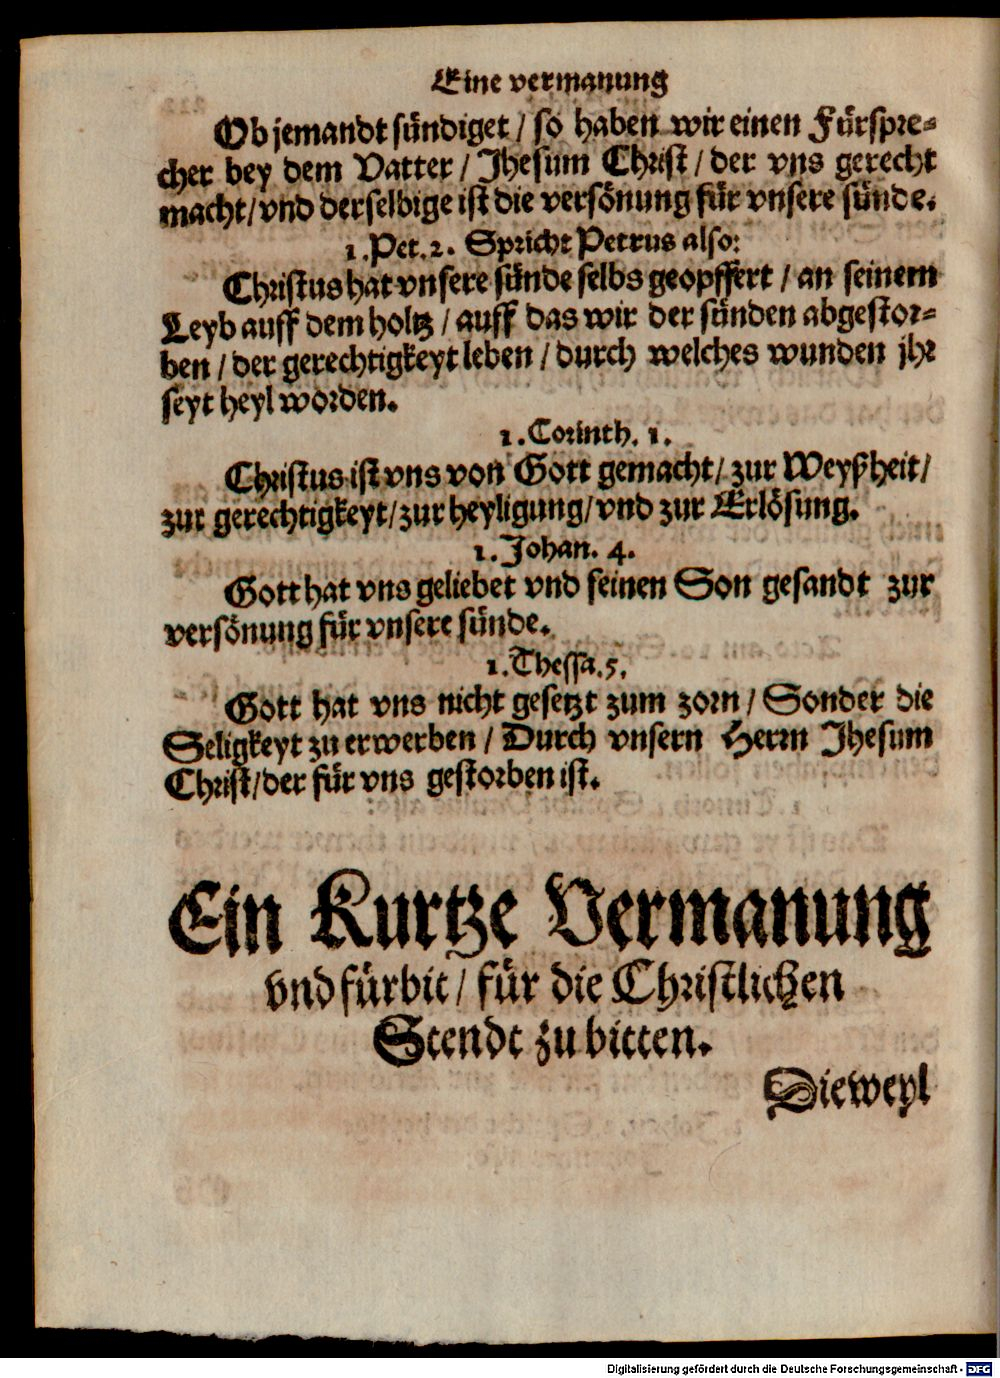 Eine vermanung
Ob jemandt sündiget / so haben wir einen Fürspre-
cher bey dem Vatter / Jhesum Christ / der vns gerecht
macht / vnd derselbige ist die versönung für vnsere sünde.
1. Pet. 2. Spricht Petrus also:
Christus hat vnsere sünde selbs geopffert / an seinem
Leyb auff dem holtz / auff das wir der sünden abgestor-
ben / der gerechtigkeyt leben / durch welches wunden jhr
seyt heyl worden.
1. Corinth. 1.
Christus ist vns von Gott gemacht / zur Weyßheit /
zur gerechtigkeyt / zur heyligung / vnd zur Erlösung.
1. Johan. 4.
Gott hat vns geliebet vnd seinen Son gesandt zur
versönung für vnsere sünde.
1. Thessa. 5.
Gott hat vns nicht gesetzt zum zorn / Sonder die
Seligkeyt zu erwerben / Durch vnsern Herrn Jhesum
Christ / der für vns gestorben ist.
Ein Kurtze Vermanung
vnd fürbit / für die Christlichen
Stendt zu bitten.
Dieweyl
Digitalisierung gefördert durch die Deutsche Forschungsgemeinschaft - DFG